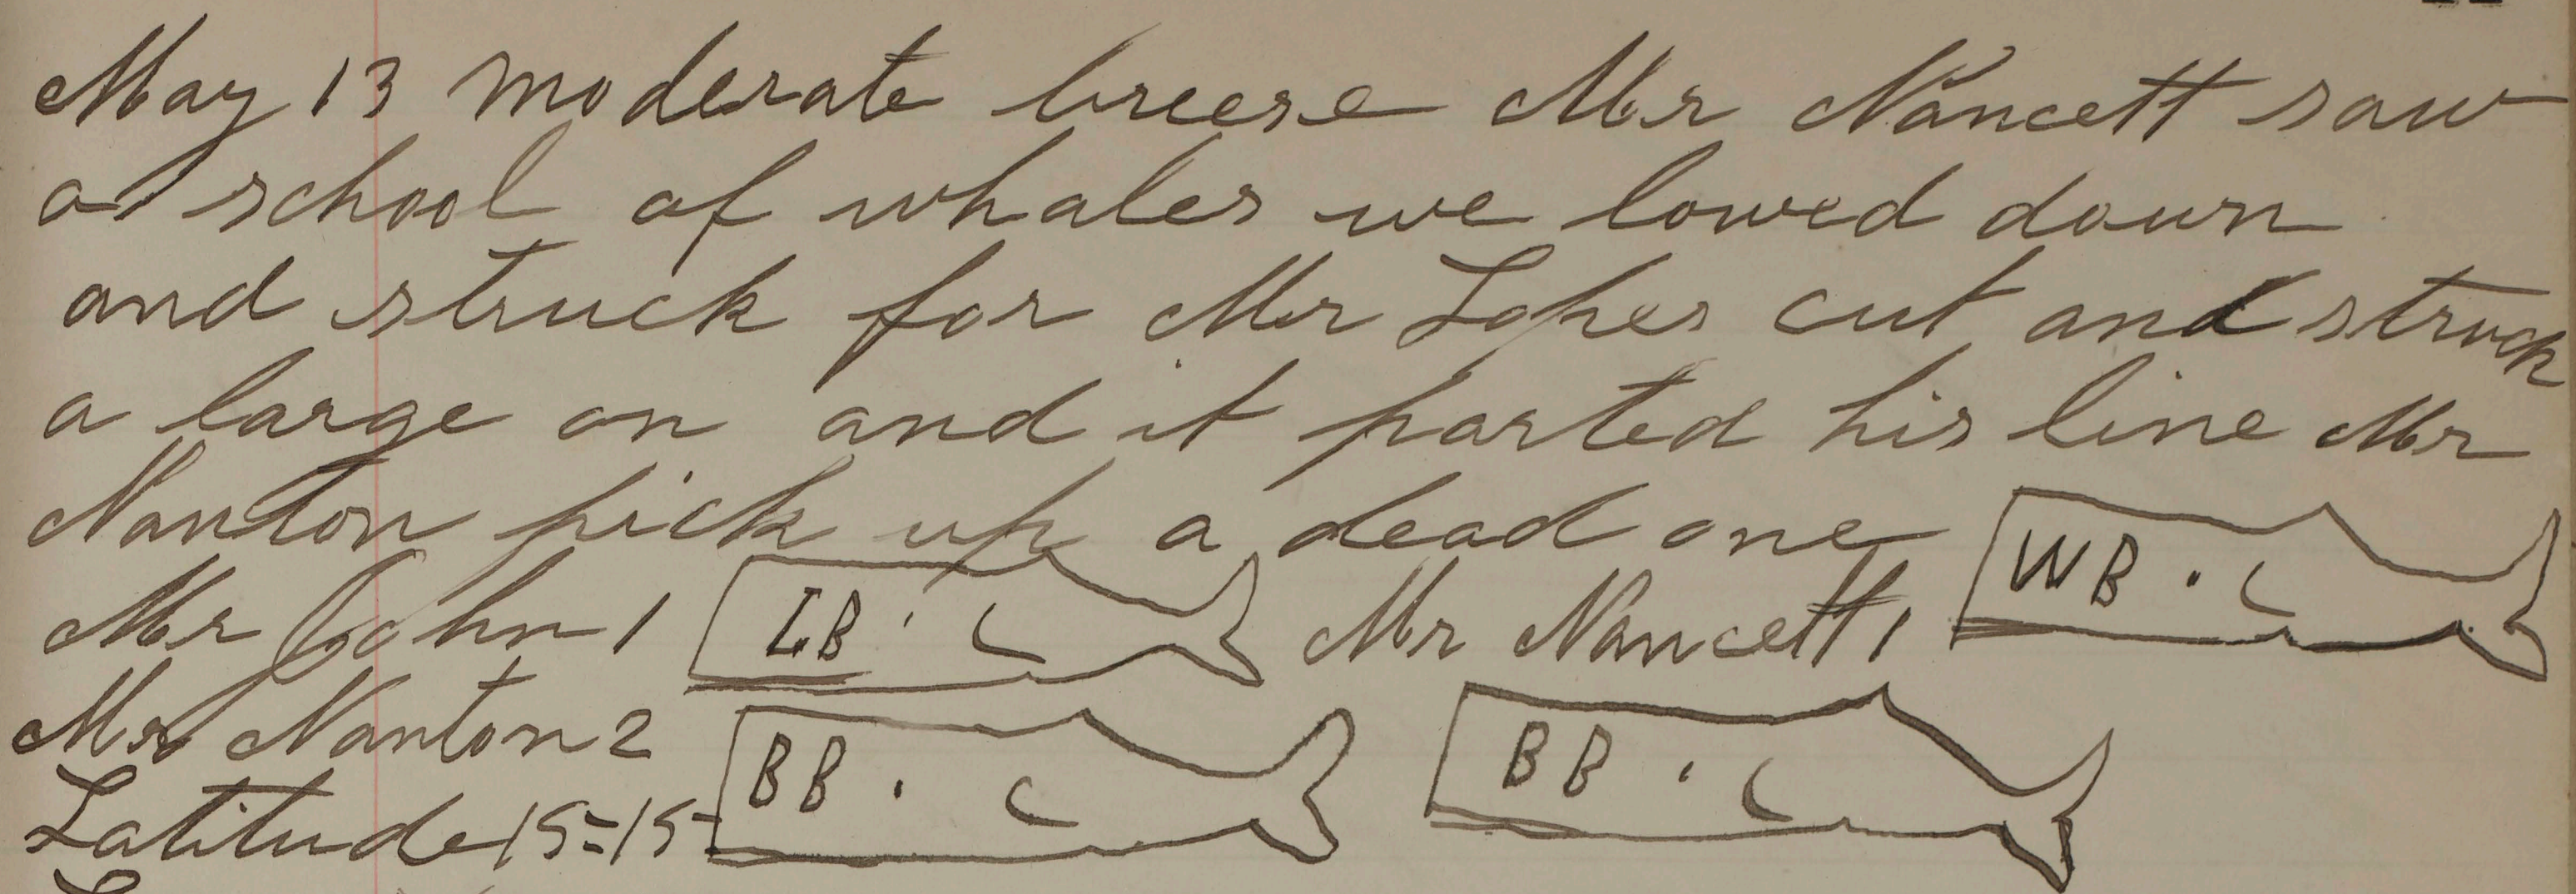 May 13 moderate breese Mr Nancett saw
a school of whales we lowed down
and struck for Mr Lopes cut and struck
a large on and it parted his line Mr
Nanton pick up a dead one
Mr John 1 LB Mr Nancett 1 WB
Mr Nanton 2 BB BB
Latitude 15-15